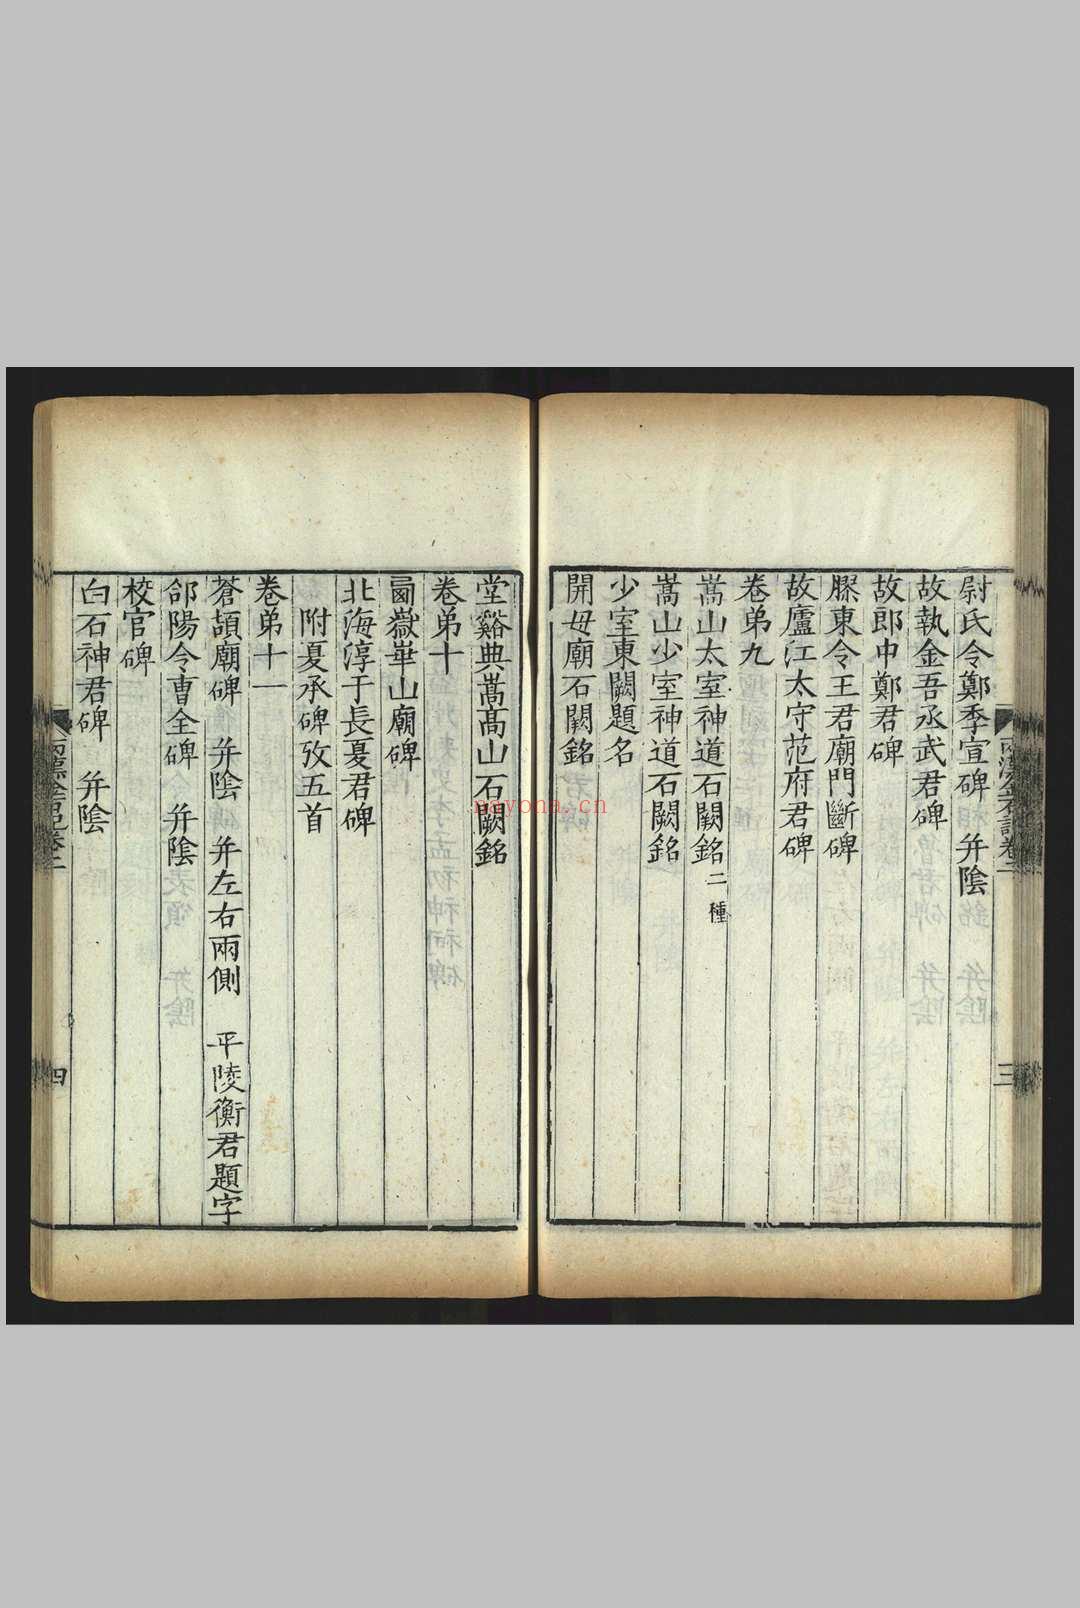 尉氏令鄭季宣碑 并陰
故執金吾丞武君碑
故郎中鄭君碑
膠東令王君廟門斷碑
故廬江太守范府君碑
卷弟九
嵩山太室神道石闕銘二種
嵩山少室神道石闕銘
少室東闕題名
開母廟石闕銘
兩漢金石記卷二
三
堂谿典嵩高山石闕銘
卷弟十
西嶽華山廟碑
北海淳于長夏君碑
附夏承碑攷五首
卷弟十一
蒼頡廟碑 并陰 并左右兩側 平陵衡君題字
郃陽令曹全碑 并陰
校官碑
白石神君碑 并陰
四
nayona.cn